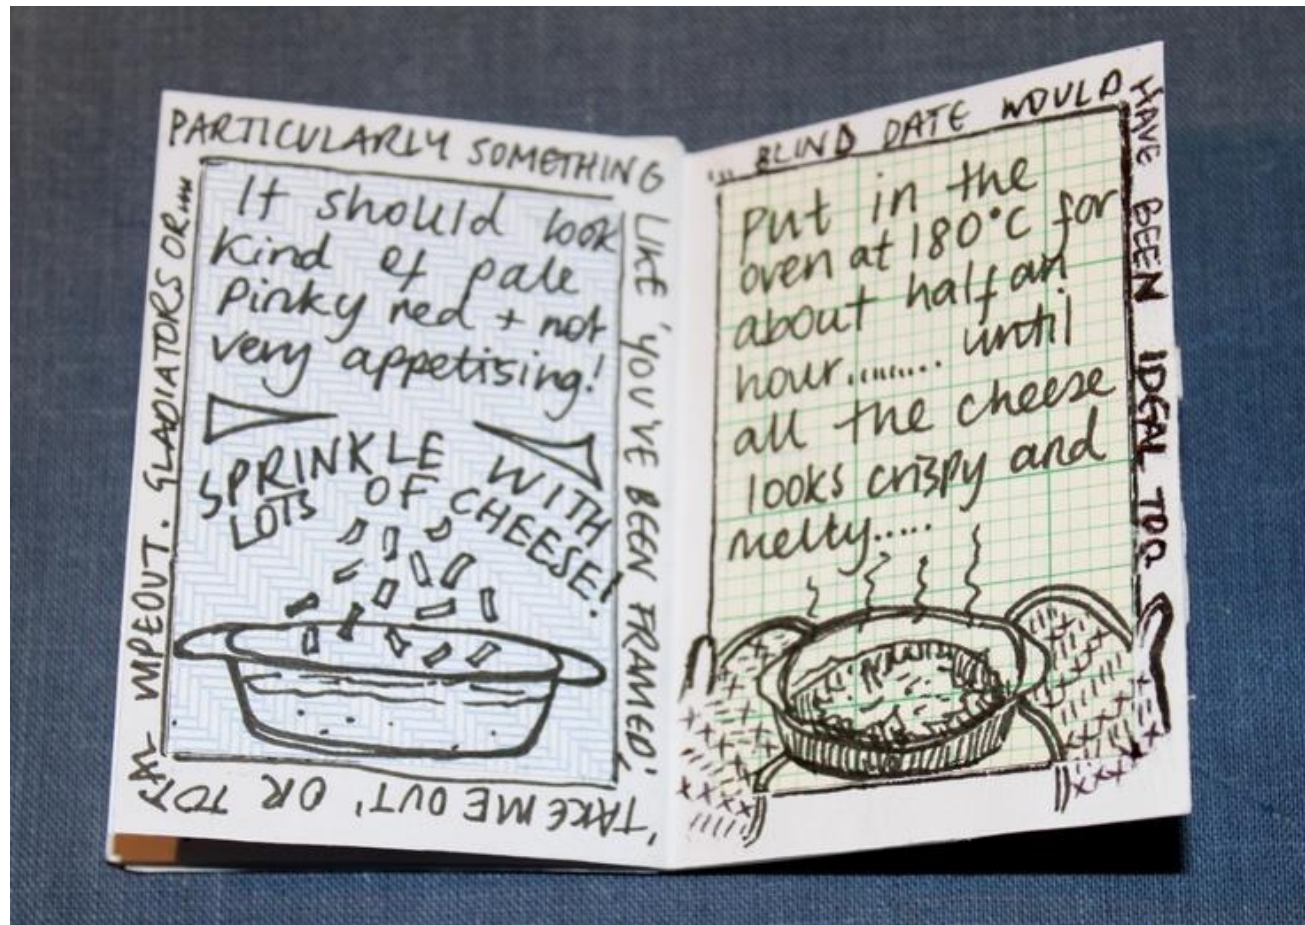 PARTICULARLY SOMETHING
LIKE 'YOU'VE BEEN FRAMED',
'TAKE ME OUT' OR TOTAL
WIPEOUT. GLADIATORS OR....
It should look
kind of pale
pinky red + not
very appetising!
SPRINKLE WITH
LOTS OF CHEESE!
"... BLIND DATE WOULD
HAVE BEEN IDEAL TOO
Put in the
oven at 180°C for
about half an
hour......... until
all the cheese
looks crispy and
melty.....